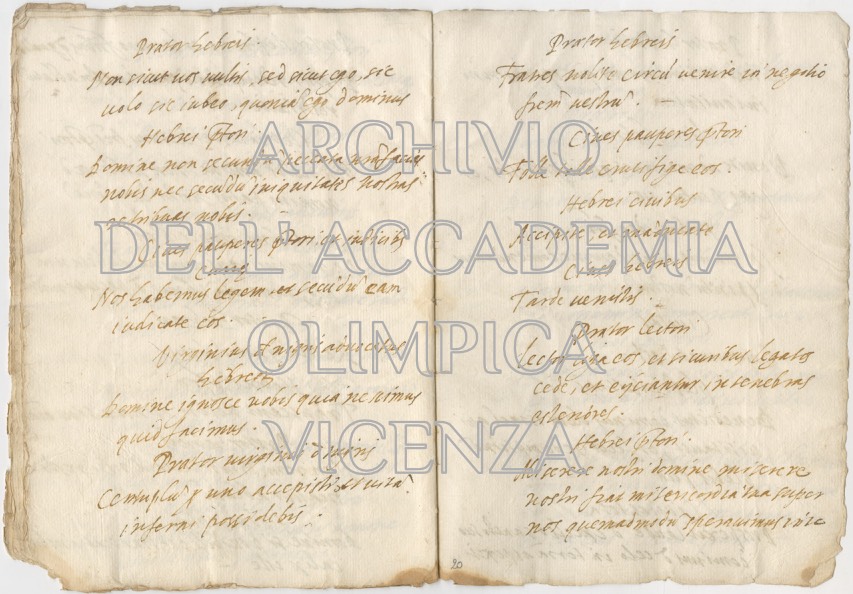 Prætor hebreis.
Non sicut vos vultis, sed sicut ego, sic
volo sic iubeo, quonia ego dominus
Hebrei ptori
Domine non secundu peccata nra facias
nobis nec secundu iniquitates nostras
retribuas nobis.
Cives pauperes ptori
Nos habemus legem et secundu eam
iudicate eos.
Virginius
hebreor
Domine ignosce nobis quia nescimus
quid facimus.
Prætor virginio
Centuplu p uno accepisti, et vita
inferni possidebis.
Prætor hebreis
Fratres nolite circuvenire in negotio
frem vestru.
Cives pauperes ptori
Tolle tolle crucifige eos.
Hebrei civibus
Accipite, et manducate
Cives hebreis
Tarde venistis.
Prætor lectori
Lector liga eos, et funibus legatos
cede, et eijciantur in tenebras
exteriores.
Hebrei ptori.
Miserere nostri domine miserere
nostri fiat misericordia tua super
nos quemadmodu speravimus in te
20
ARCHIVIO
DELL'ACCADEMIA
OLIMPICA
VICENZA